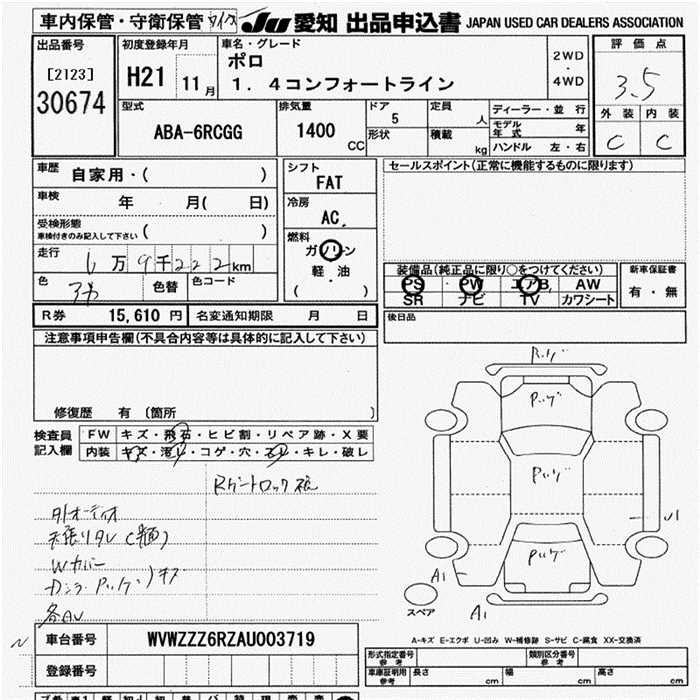 車内保管・守衛保管 JU 愛知 出品申込書 JAPAN USED CAR DEALERS ASSOCIATION
出品番号 初度登録年月 車名・グレード 評価点
[2123] ポロ 2WD
・
30674 H21 11月 1.4コンフォートライン 4WD 3.5
型式 排気量 ドア 定員 ディーラー・並行 外装 内装
ABA-6RCGG 1400 CC 5 人 モデル年式 年 C C
形状 積載 kg ハンドル 左・右
車歴 自家用・( ) シフト セールスポイント(正常に機能するものに限ります)
FAT
車検 年 月( 日) 冷房
AC
受検形態
車検付きのみ記入して下さい ( ) 燃料
走行 万9千222km ガソリン
軽・油
( )
色 色替 色コード
装備品(純正品に限り○をつけてください) 新車保証書
PS PW エアB AW 有・無
SR ナビ TV カワシート
R券 15,610円 名変通知期限 月 日 後日品
注意事項申告欄(不具合内容等は具体的に記入して下さい)
修復歴 有 (箇所 )
検査員 FW キズ・飛石・ヒビ割・リペア跡・X要
記入欄 内装 キズ・汚レ・コゲ・穴・スレ・キレ・破レ
Wカバー
A1
A1
スペア
A-キズ E-エクボ U-凹み W-補修跡 S-サビ C-腐食 XX-交換済
車台番号 WVWZZZ6RZAU003719
登録番号
形式指定番号 参考 類別区分番号 参考
車庫証明用 参考 長さ cm 幅 cm 高さ cm